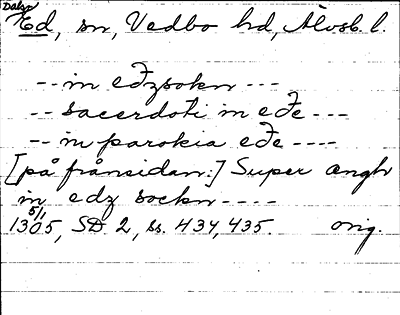 Dalsp
Ed, sn, Vedbo hd, Älvsb. l.
-- in eðzsokn ---
-- sacerdoti in eðe ---
-- in parokia eðe ----
[på frånsidan:] Super ængh
in edz sockn ----
5/1
1305, SD 2, ss. 434, 435. orig.